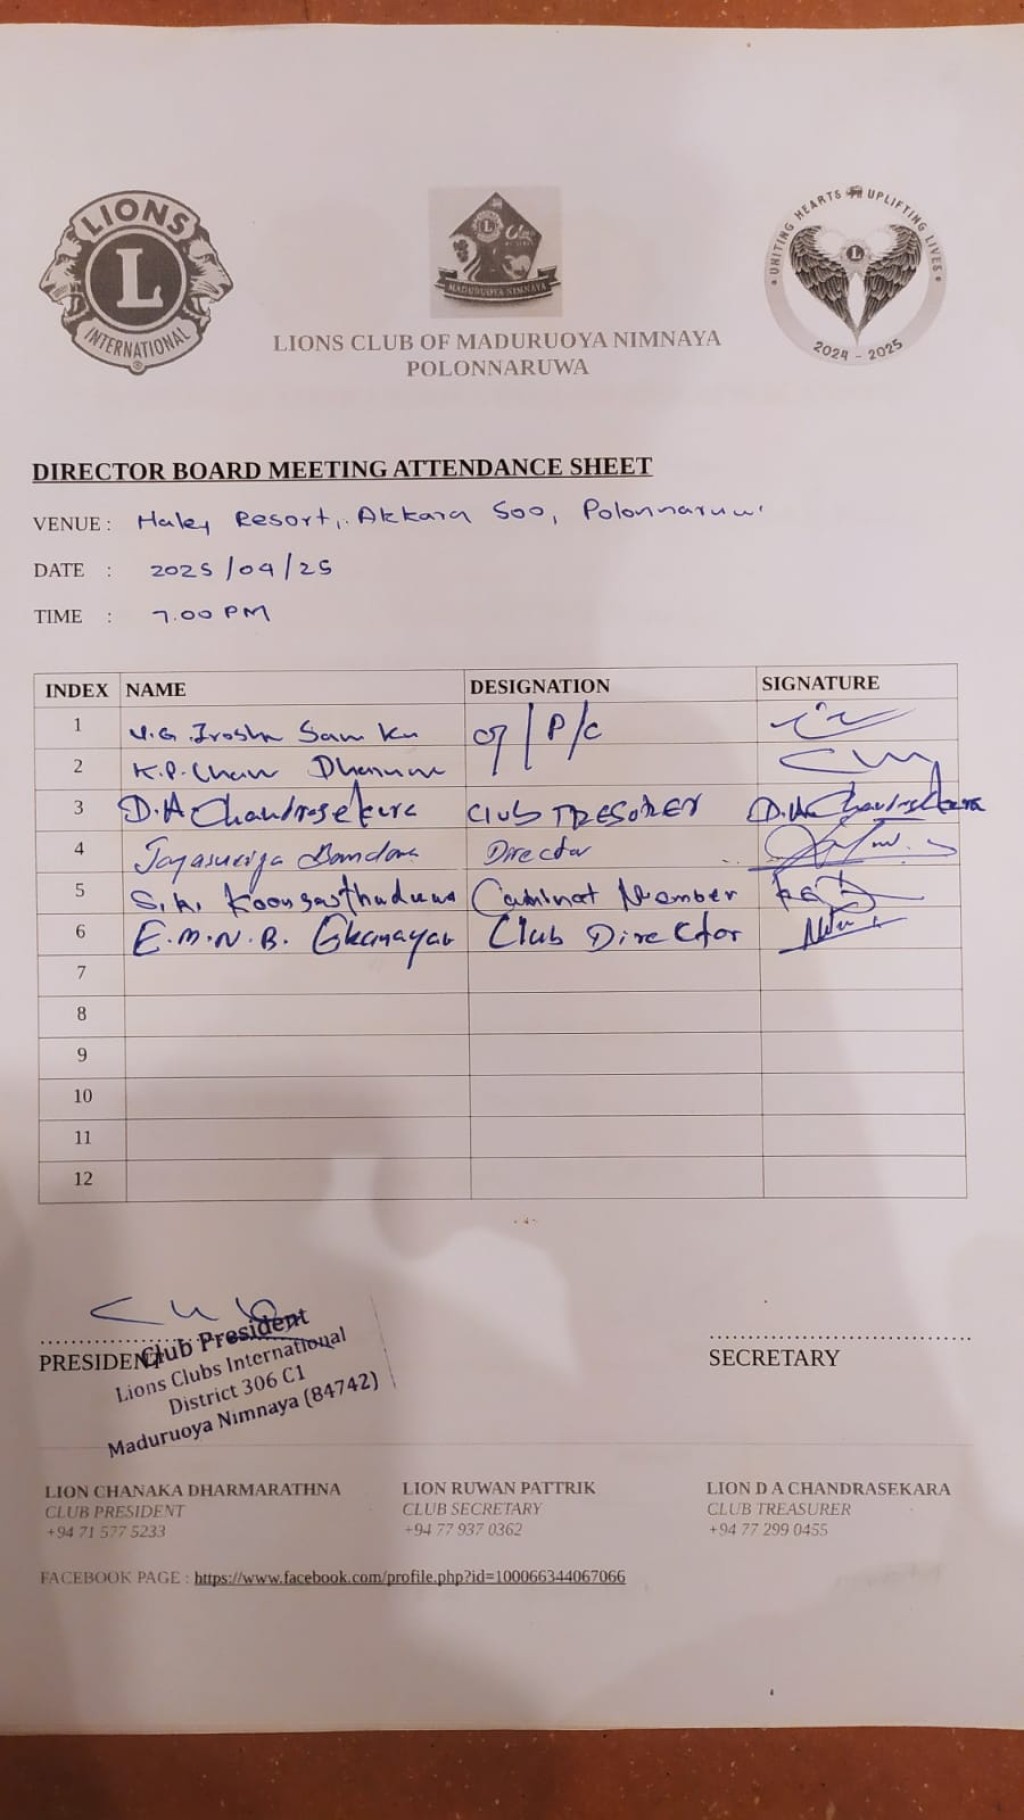 LIONS
L
INTERNATIONAL
MADURUOYA NIMNAYA
UNITING HEARTS UPLIFTING LIVES
L
2024 - 2025
LIONS CLUB OF MADURUOYA NIMNAYA
POLONNARUWA
DIRECTOR BOARD MEETING ATTENDANCE SHEET
VENUE : Haley Resort, Akkara 500,
DATE : 2025/04/25
TIME : 7.00 PM
INDEX NAME DESIGNATION SIGNATURE
1
2 K.P.
3 D.A Chandrasekara Club TRESORER D.A. Chandrasekara
4 Jayasuriya Bandara Director
5 Member
6 E.M.N.B. Club Director
7
8
9
10
11
12
PRESIDENT
Club President
Lions Clubs International
District 306 C1
Maduruoya Nimnaya (84742)
SECRETARY
LION CHANAKA DHARMARATHNA LION RUWAN PATTRIK LION D A CHANDRASEKARA
CLUB PRESIDENT CLUB SECRETARY CLUB TREASURER
+94 71 577 5233 +94 77 937 0362 +94 77 299 0455
FACEBOOK PAGE : https://www.facebook.com/profile.php?id=100066344067066